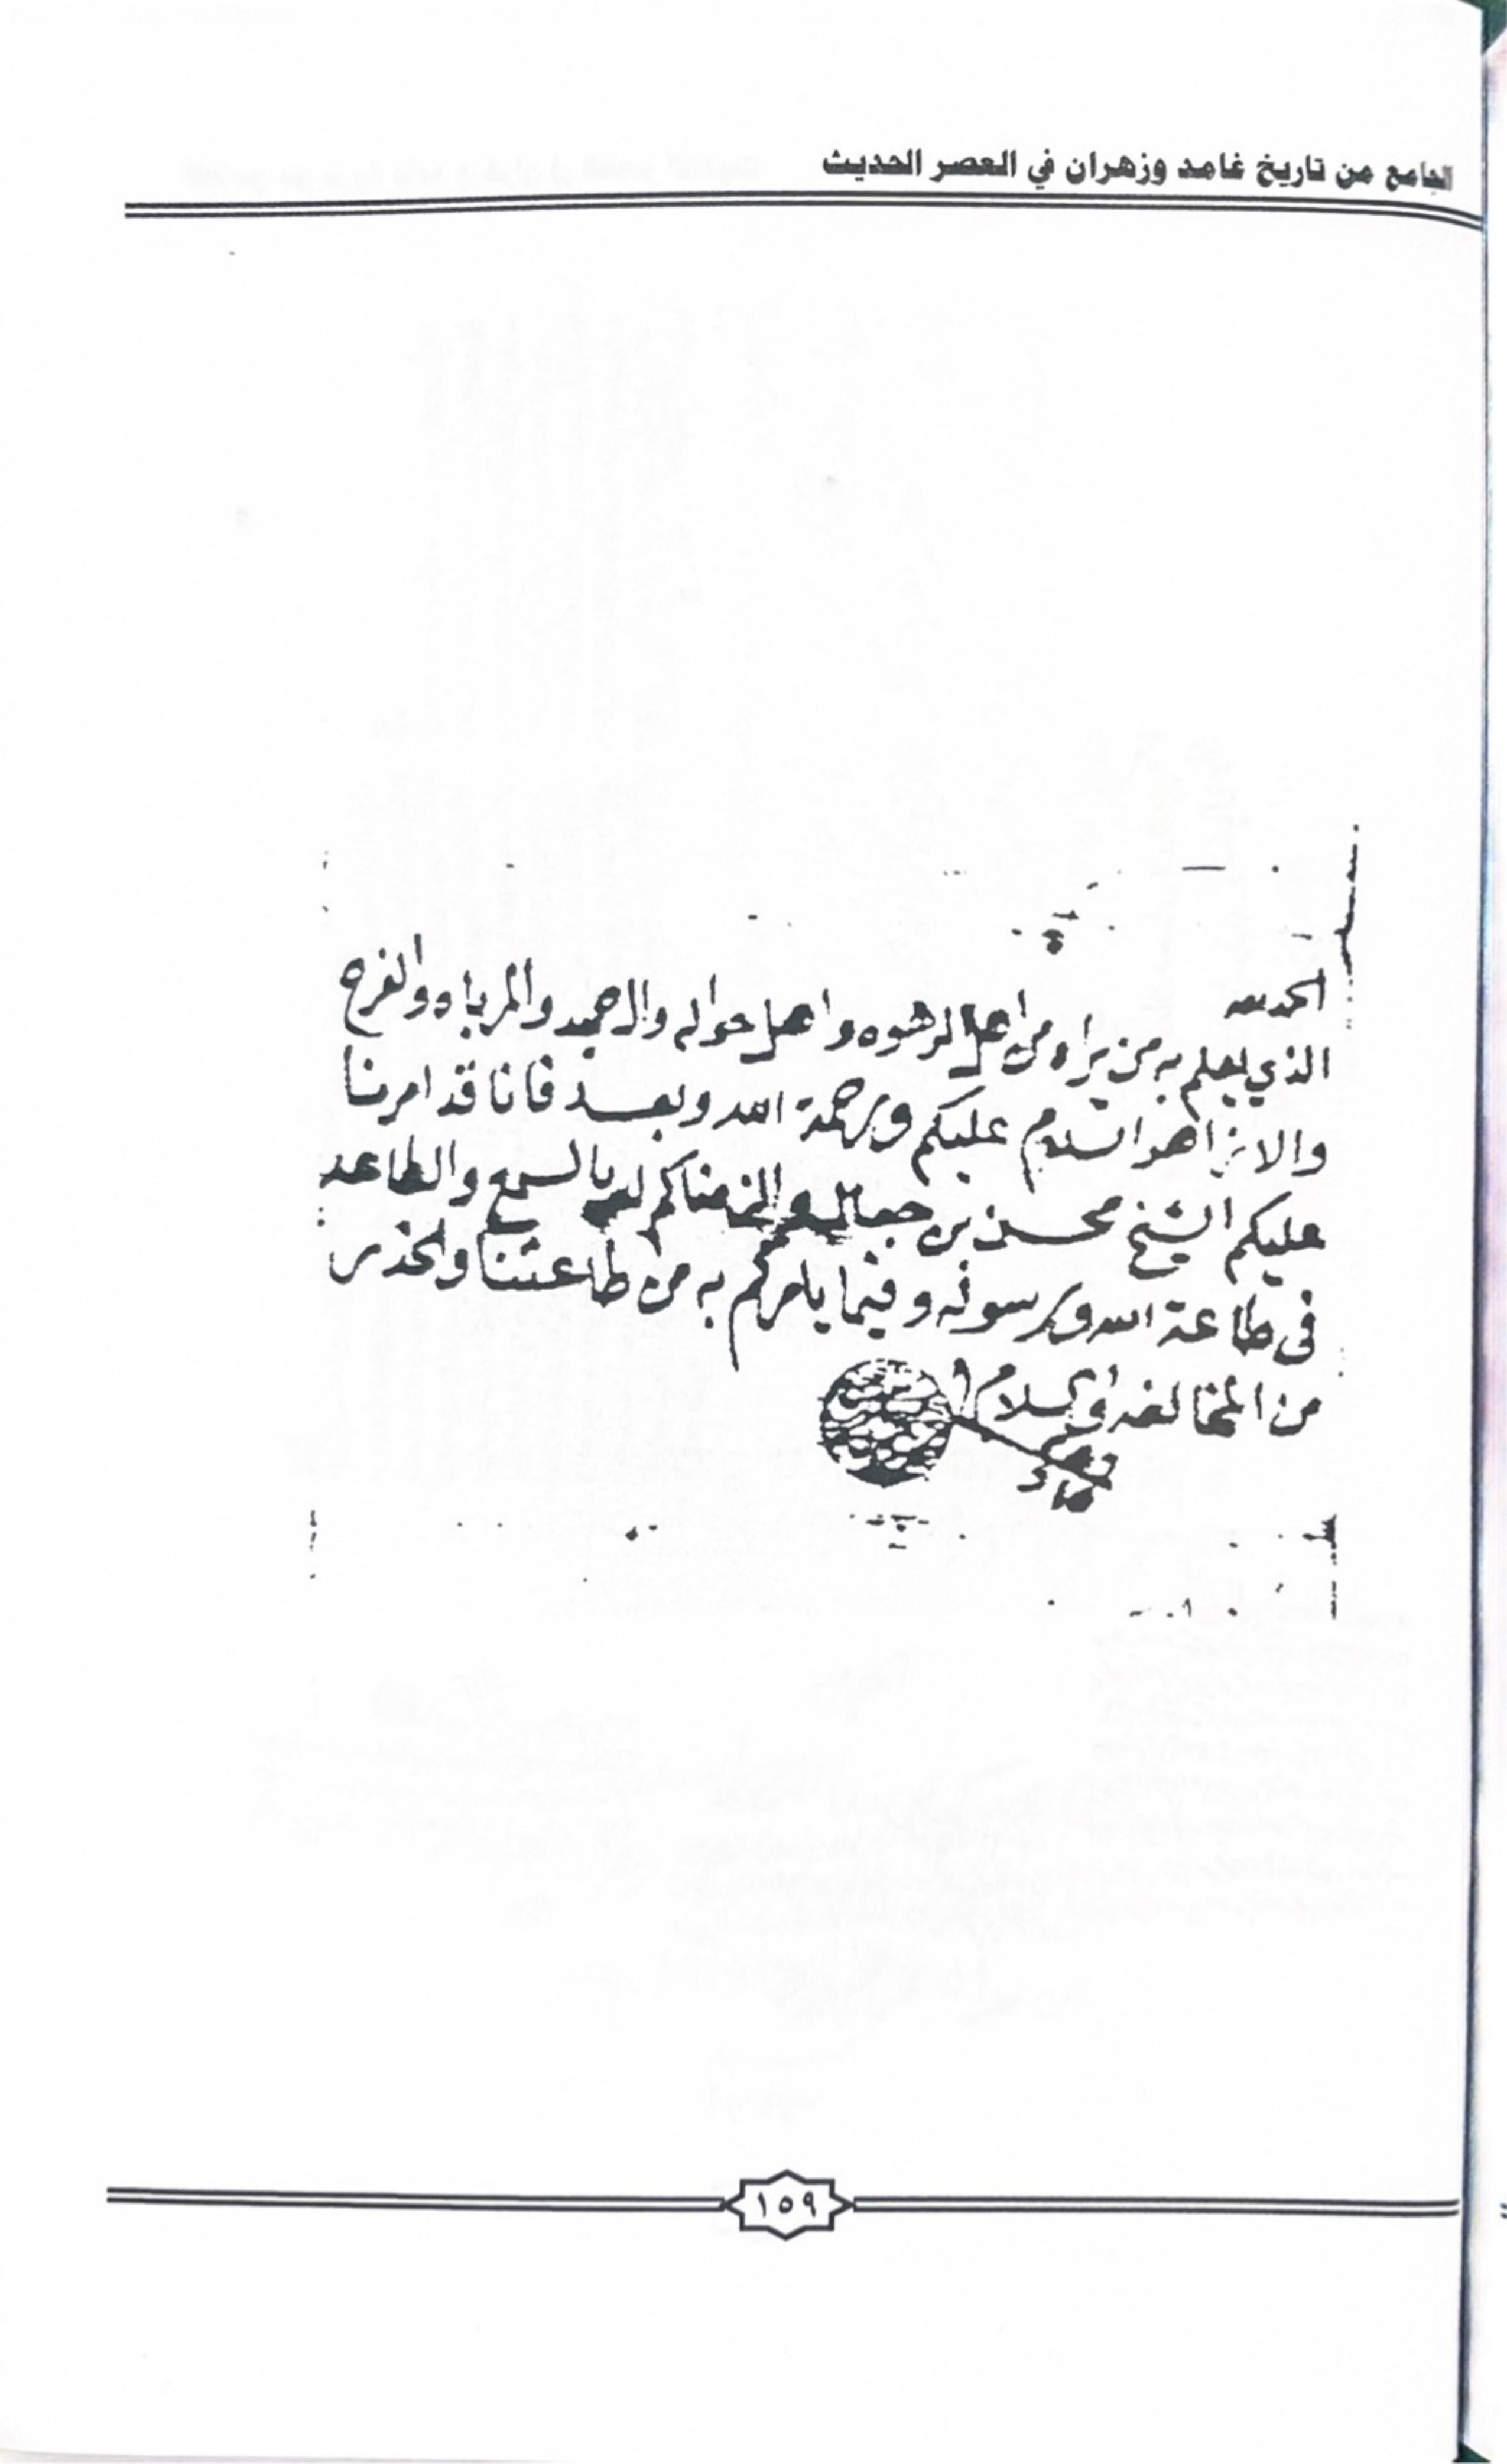 الجامع من تاريخ غامد وزهران في العصر الحديث
الحمد لله
الذي يعلم به من يراه من اهل الرهوه واهل حواله والاصهيد والمرباه والفرع
والازاهر السلام عليكم ورحمة الله وبعد فانا قد امرنا
عليكم الشيخ محسن بن والزمناكم له بالسمع والطاعه
في طاعة الله ورسوله وفيما يامركم به من طاعتنا والحذر
من المخالفه والسلام
١٥٩